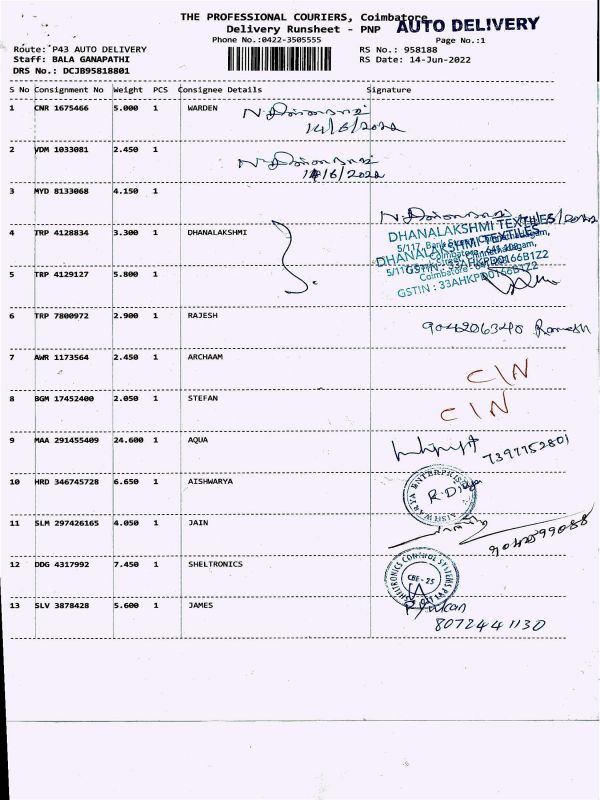 THE PROFESSIONAL COURIERS, Coimbatore
AUTO DELIVERY
Delivery Runsheet - PNP
Phone No.:0422-3505555
Page No.:1
Route: P43 AUTO DELIVERY
RS No.: 958188
Staff: BALA GANAPATHI
RS Date: 14-Jun-2022
DRS No.: DCJB95818801
S No Consignment No Weight PCS Consignee Details Signature
1 CNR 1675466 5.000 1 WARDEN
14/6/2022
2 VDM 1033081 2.450 1
14/6/2022
3 MYD 8133068 4.150 1
4 TRP 4128834 3.300 1 DHANALAKSHMI
DHANALAKSHMI TEXTILES
DHANALAKSHMI TEXTILES
5 TRP 4129127 5.800 1
GSTIN : 33AHKPD0166B1Z2
6 TRP 7800972 2.900 1 RAJESH
9042206340 Ramesh
7 AWR 1173564 2.450 1 ARCHAAM
C/N
8 BGM 17452400 2.050 1 STEFAN
C/N
9 MAA 291455409 24.600 1 AQUA
7397752801
10 HRD 346745728 6.650 1 AISHWARYA
AISHWARYA ENTERPRISES
R. Divya
11 SLM 297426165 4.050 1 JAIN
12 DDG 4317992 7.450 1 SHELTRONICS
CBE - 25
13 SLV 3878428 5.600 1 JAMES
8072441130